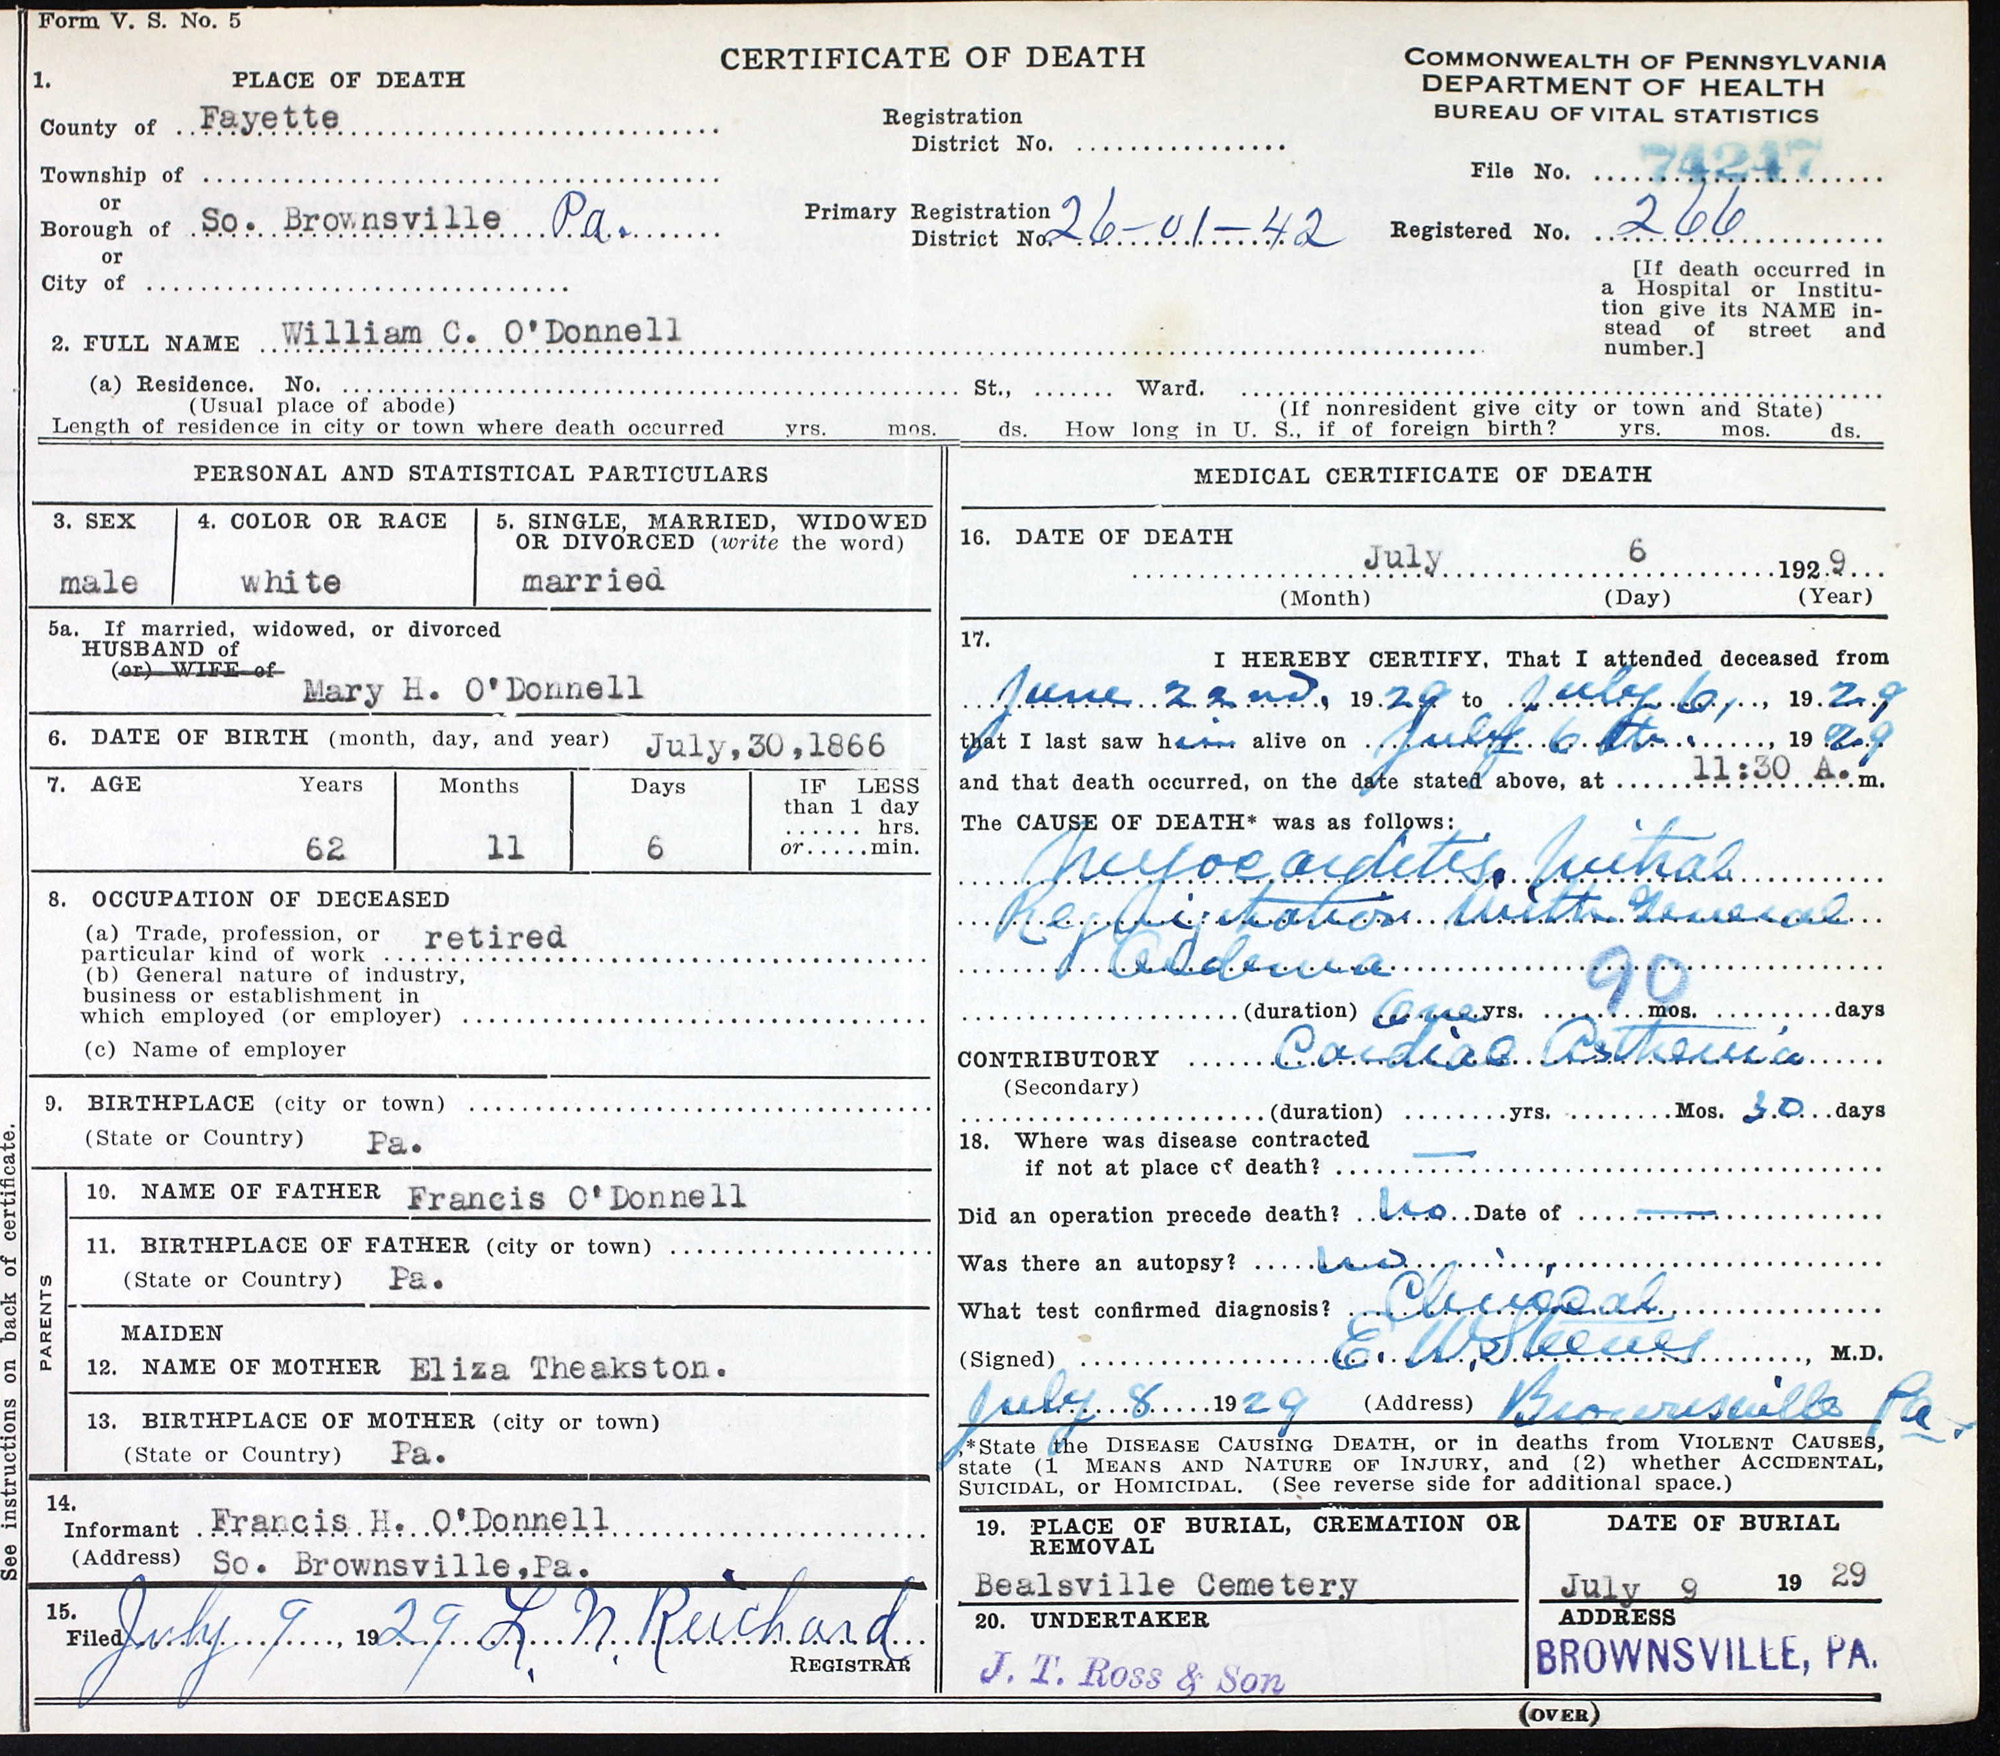 Form V. S. No. 5
CERTIFICATE OF DEATH
COMMONWEALTH OF PENNSYLVANIA
DEPARTMENT OF HEALTH
BUREAU OF VITAL STATISTICS
1. PLACE OF DEATH
County of Fayette
Registration
District No.
File No. 74247
Township of
or
Borough of So. Brownsville Pa.
Primary Registration
District No. 26-01-42
Registered No. 266
or
City of
[If death occurred in
a Hospital or Institu-
tion give its NAME in-
stead of street and
number.]
2. FULL NAME William C. O'Donnell
(a) Residence. No. St., Ward.
(Usual place of abode) (If nonresident give city or town and State)
Length of residence in city or town where death occurred yrs. mos. ds. How long in U. S., if of foreign birth? yrs. mos. ds.
PERSONAL AND STATISTICAL PARTICULARS
3. SEX
male
4. COLOR OR RACE
white
5. SINGLE, MARRIED, WIDOWED
OR DIVORCED (write the word)
married
5a. If married, widowed, or divorced
HUSBAND of
(or) WIFE of
Mary H. O'Donnell
6. DATE OF BIRTH (month, day, and year) July,30,1866
7. AGE Years Months Days IF LESS
than 1 day
hrs.
62 11 6 or min.
8. OCCUPATION OF DECEASED
(a) Trade, profession, or
particular kind of work retired
(b) General nature of industry,
business or establishment in
which employed (or employer)
(c) Name of employer
9. BIRTHPLACE (city or town)
(State or Country) Pa.
PARENTS
10. NAME OF FATHER Francis O'Donnell
11. BIRTHPLACE OF FATHER (city or town)
(State or Country) Pa.
MAIDEN
12. NAME OF MOTHER Eliza Theakston.
13. BIRTHPLACE OF MOTHER (city or town)
(State or Country) Pa.
14.
Informant Francis H. O'Donnell
(Address) So. Brownsville,Pa.
15.
Filed July 9, 1929 L. N. Reichard
REGISTRAR
See instructions on back of certificate.
MEDICAL CERTIFICATE OF DEATH
16. DATE OF DEATH
July 6 1929
(Month) (Day) (Year)
17.
I HEREBY CERTIFY, That I attended deceased from
June 22nd, 1929 to July 6, 1929
that I last saw him alive on July 6th, 1929
and that death occurred, on the date stated above, at 11:30 A.m.
The CAUSE OF DEATH* was as follows:
Myocarditis, Mitral
Regurgitation with General
Oedema
90
(duration) One yrs. mos. days
CONTRIBUTORY Cardiac Asthenia
(Secondary)
(duration) yrs. Mos. 30 days
18. Where was disease contracted
if not at place of death? —
Did an operation precede death? No Date of —
Was there an autopsy? no
What test confirmed diagnosis? Clinical
(Signed) E. W. , M.D.
July 8 1929 (Address) Brownsville Pa.
*State the DISEASE CAUSING DEATH, or in deaths from VIOLENT CAUSES,
state (1 MEANS AND NATURE OF INJURY, and (2) whether ACCIDENTAL,
SUICIDAL, or HOMICIDAL. (See reverse side for additional space.)
19. PLACE OF BURIAL, CREMATION OR
REMOVAL
Bealsville Cemetery
DATE OF BURIAL
July 9 19 29
20. UNDERTAKER
J. T. Ross & Son
ADDRESS
BROWNSVILLE, PA.
(OVER)